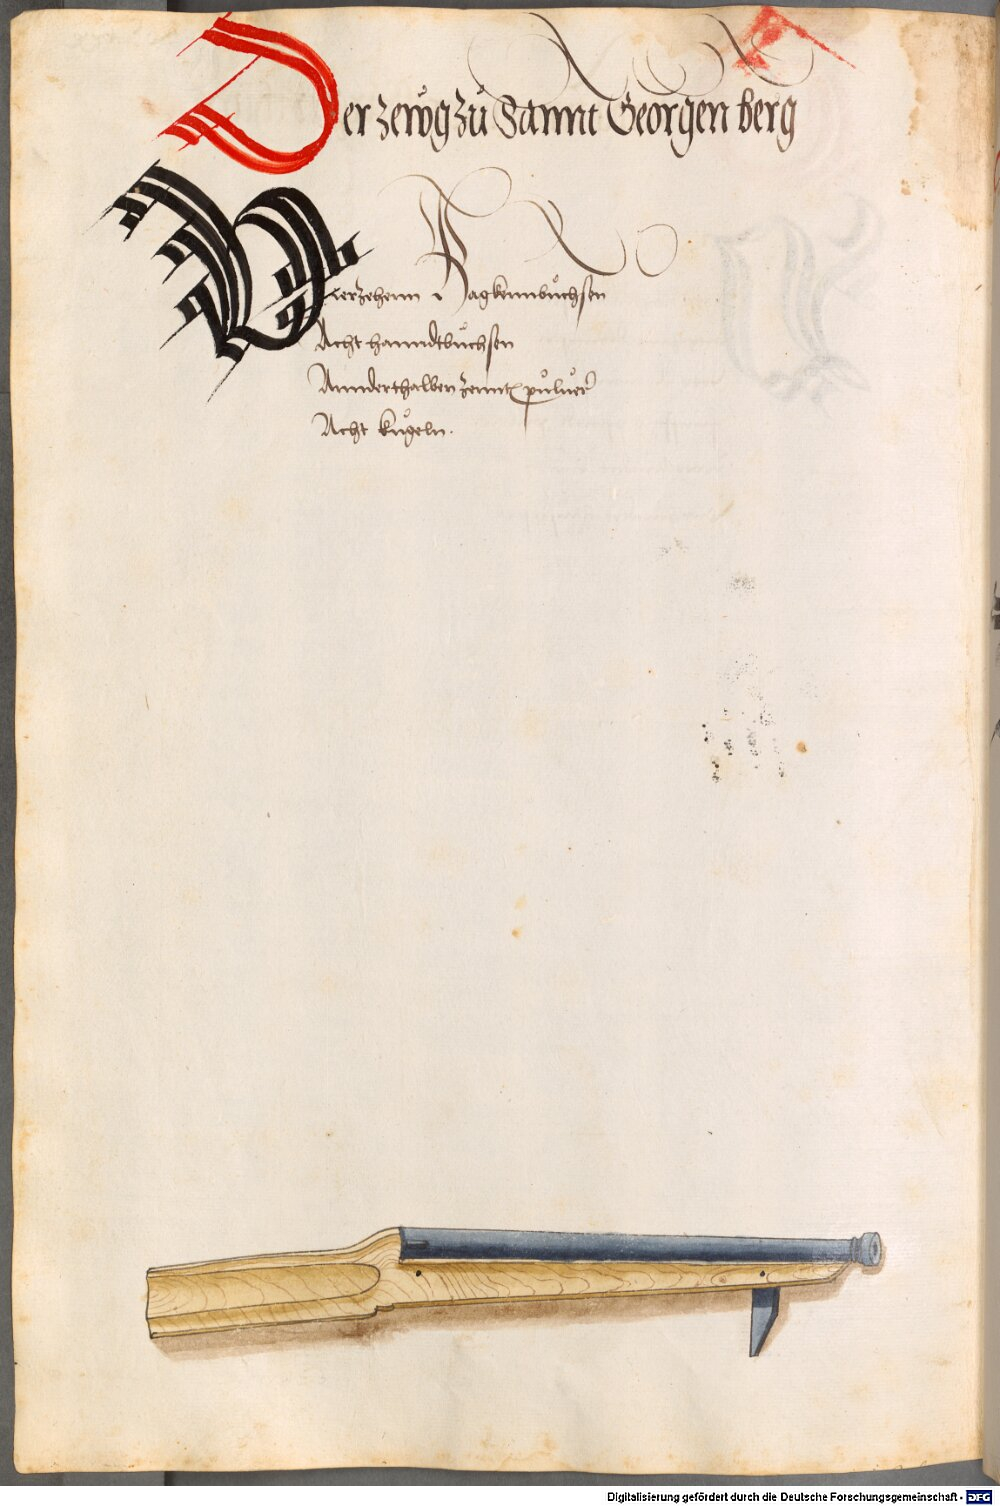 Der zewg zů Sannt Georgen berg
Vierzehenn Hagkennbůchsen
Acht hanndtbůchsen
Annderthalben Zennt půluer
Acht kůgeln.
Digitalisierung gefördert durch die Deutsche Forschungsgemeinschaft - DFG